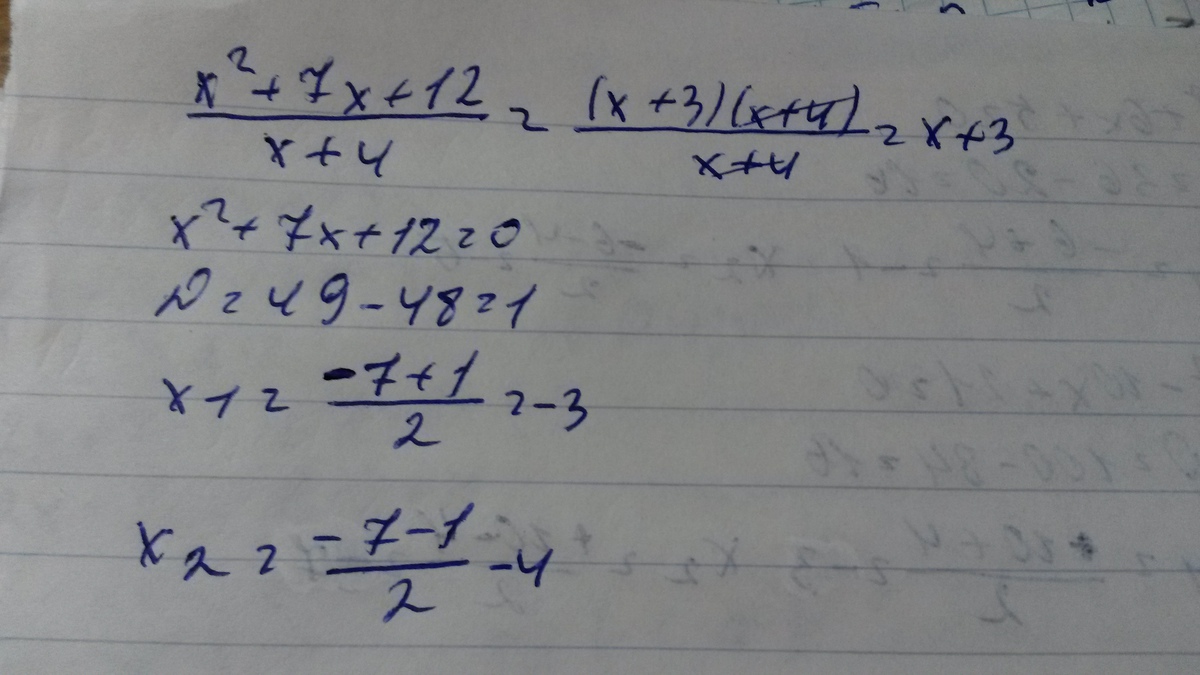 x²+7x+12 / x+4 = (x+3)(x+4) / x+4 = x+3
x²+7x+12=0
D=49-48=1
x1= -7+1 / 2 =-3
x2= -7-1 / 2 -4